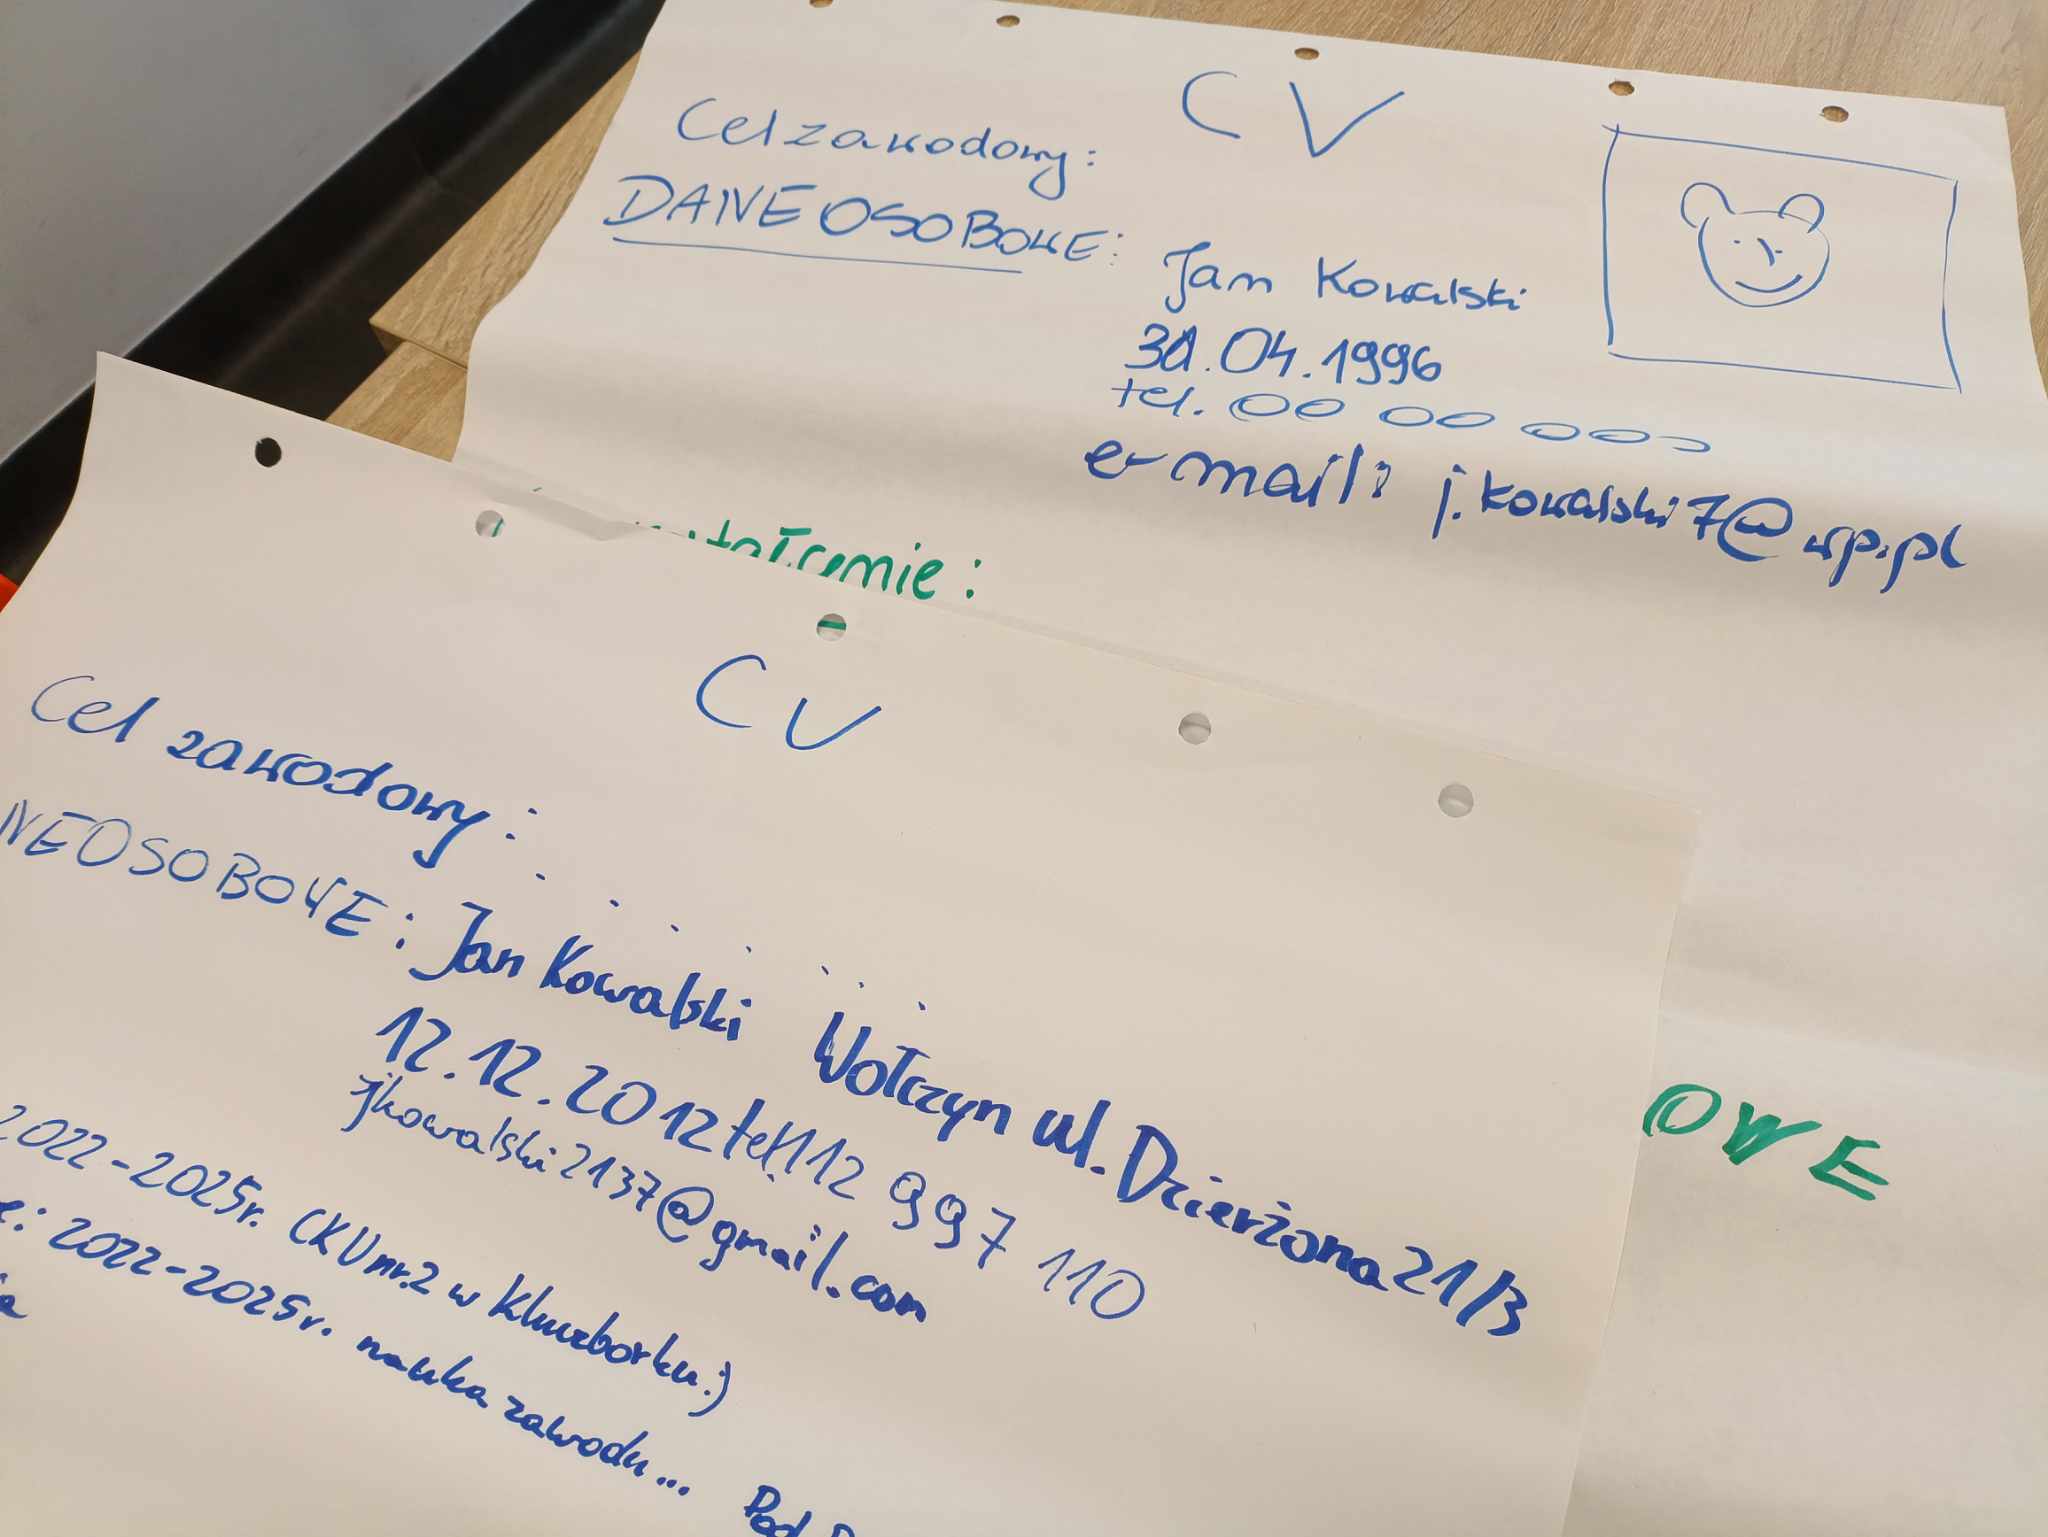 CV
Cel zawodowy:
DANE OSOBOWE:
Jan Kowalski
.04.1996
tel. 00 00 000
e-mail: j.kowalski7@wp.pl
CV
Cel zawodowy: . . . . . . . .
NE OSOBOWE: Jan Kowalski Wołczyn ul. Dzierżona 21/3
12.12.2012 tel. 112 997 110
jkowalski2137@gmail.com
OWE
2022-2025r. CKU nr.2 w Kluczborku:)
e: 2022-2025r. nauka zawodu...
Pod